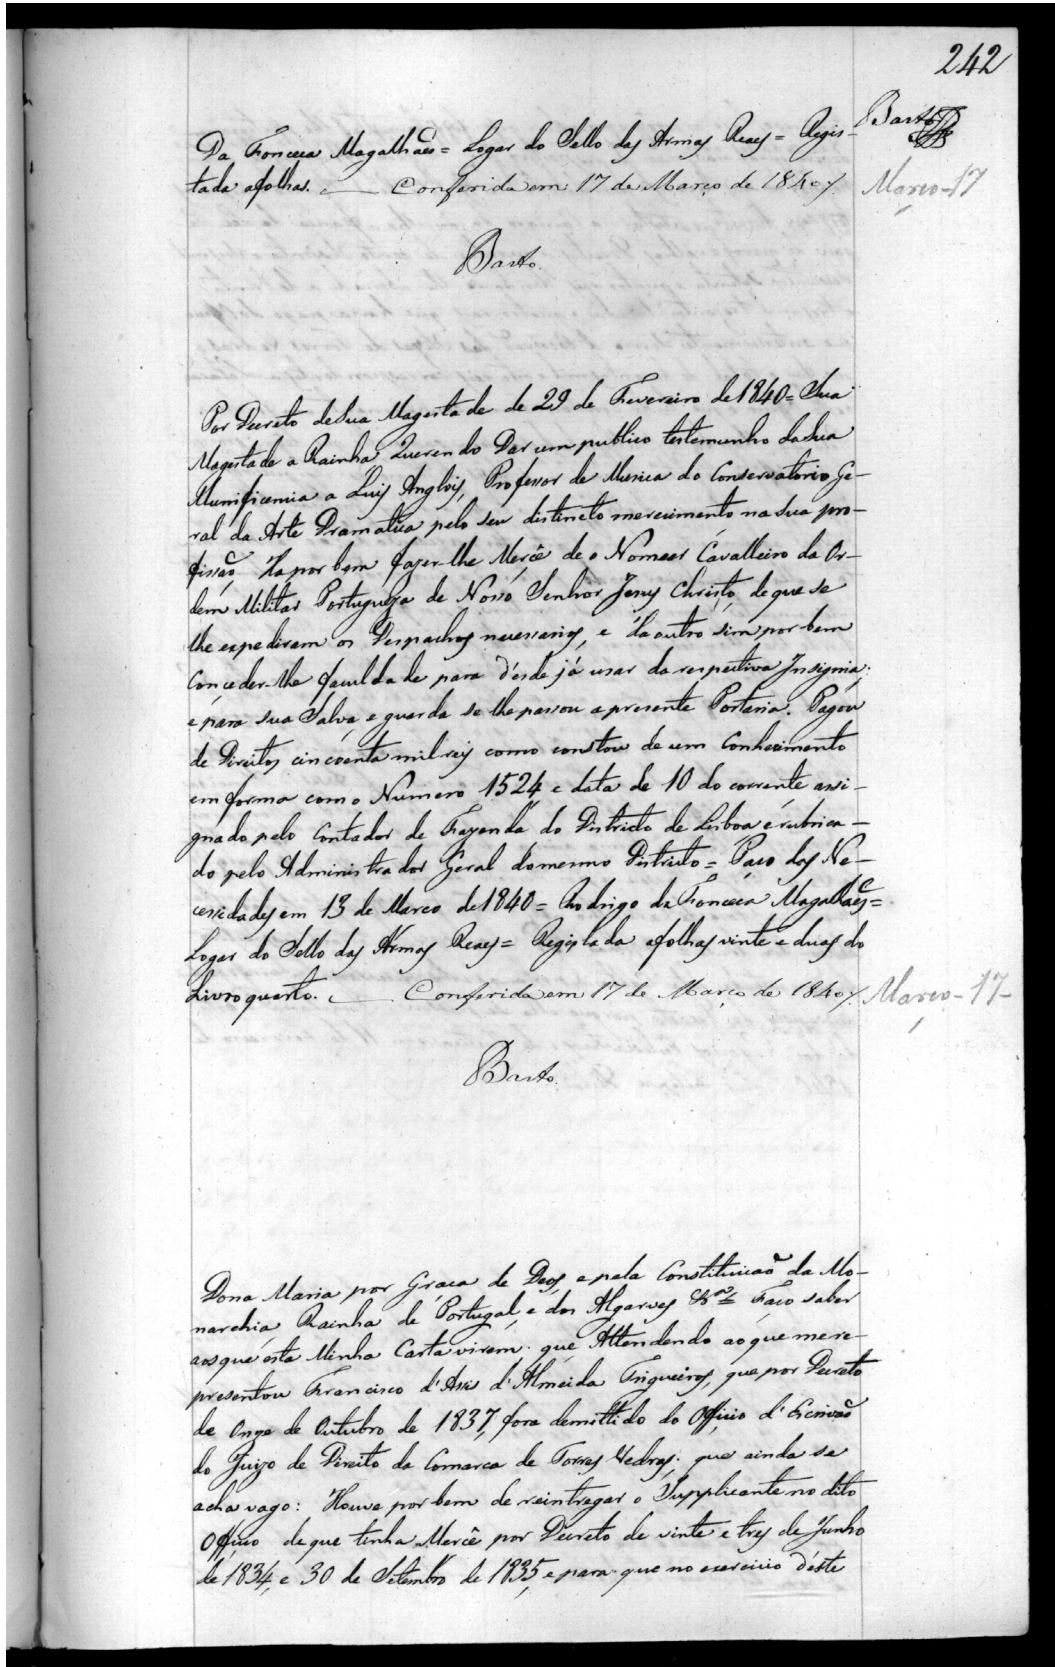 242
Basto
Da Fonceca Magalhães = Logar do Sello das Armas Reaes = Regis-
tada a folhas. Conferida em 17 de Março de 1840
Março-17
Basto.
Por Decreto de Sua Magestade de 29 de Fevereiro de 1840 = Sua
Magestade a Rainha Querendo Dar um publico testemunho da Sua
Munificencia a Luis Anglois, Professor de Musica do Conservatorio Ge-
ral da Arte Dramatica pelo seu distincto merecimento na sua pro-
fissão, Ha por bem fazer-lhe Mercê de o Nomear Cavalleiro da Or-
dem Militar Portugueza de Nosso Senhor Jesus Christo, de que se
lhe expediram os Despachos necessarios, e Ha outro sim por bem
Conceder-lhe faculdade para desde já usar da respectiva Insignia;
e para sua Salva e guarda se lhe passou a presente Portaria. Pagou
de Direitos cincoenta mil reis como constou de um Conhecimento
em forma com o Numero 1524 e data de 10 do corrente assi-
gnado pelo Contador de Fazenda do Districto de Lisboa e rubrica-
do pelo Administrador Geral do mesmo Districto = Paço das Ne-
cessidades em 13 de Março de 1840 = Rodrigo da Fonceca Magalhães =
Logar do Sello das Armas Reaes = Registada a folhas vinte e duas do
Livro quarto. Conferida em 17 de Março de 1840
Março-17-
Basto.
Dona Maria por Graça de Deos, e pela Constituicaõ da Mo-
narchia Rainha de Portugal, e dos Algarves &ª = Faço saber
aos que esta Minha Carta virem que Attendendo ao que me re-
presentou Francisco d'Assis d'Almeida Trigueiros, que por Decreto
de Onze de Outubro de 1837, fora demittido do Officio d'Escrivão
do Juizo de Direito da Comarca de Torres Vedras; que ainda se
acha vago: Houve por bem de reintregar o Supplicante no dito
Officio de que tinha Mercê por Decreto de vinte e tres de Junho
de 1834, e 30 de Setembro de 1835, e para que no exercicio d'este